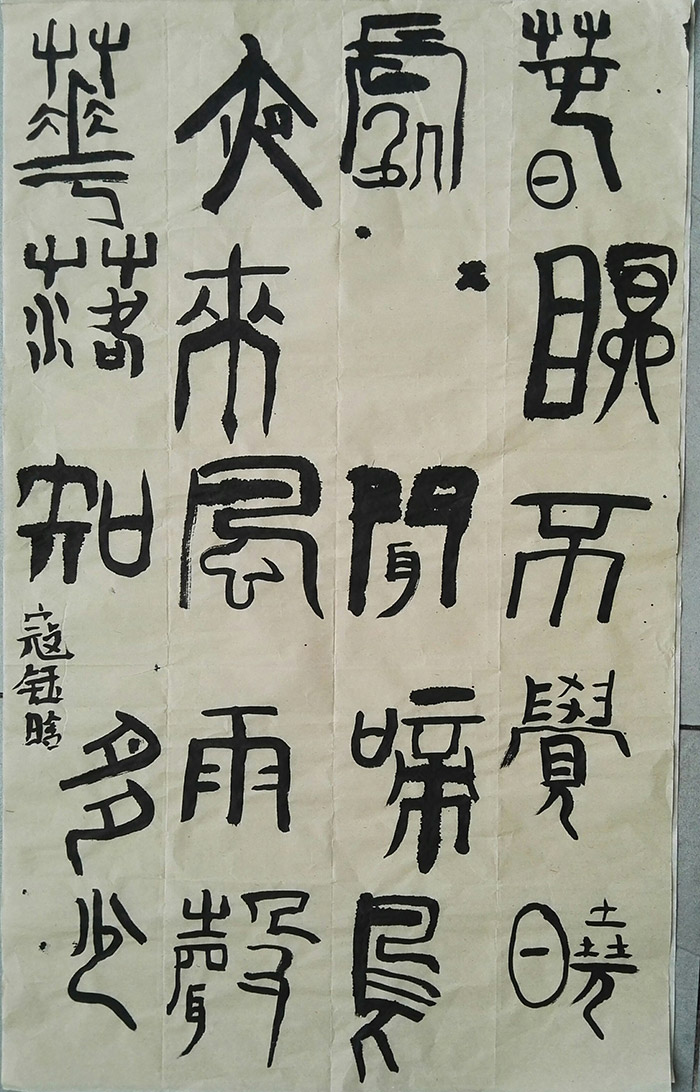 春眠不覺曉
處々聞啼鳥
夜來風雨聲
華落知多少
寇鈺晗